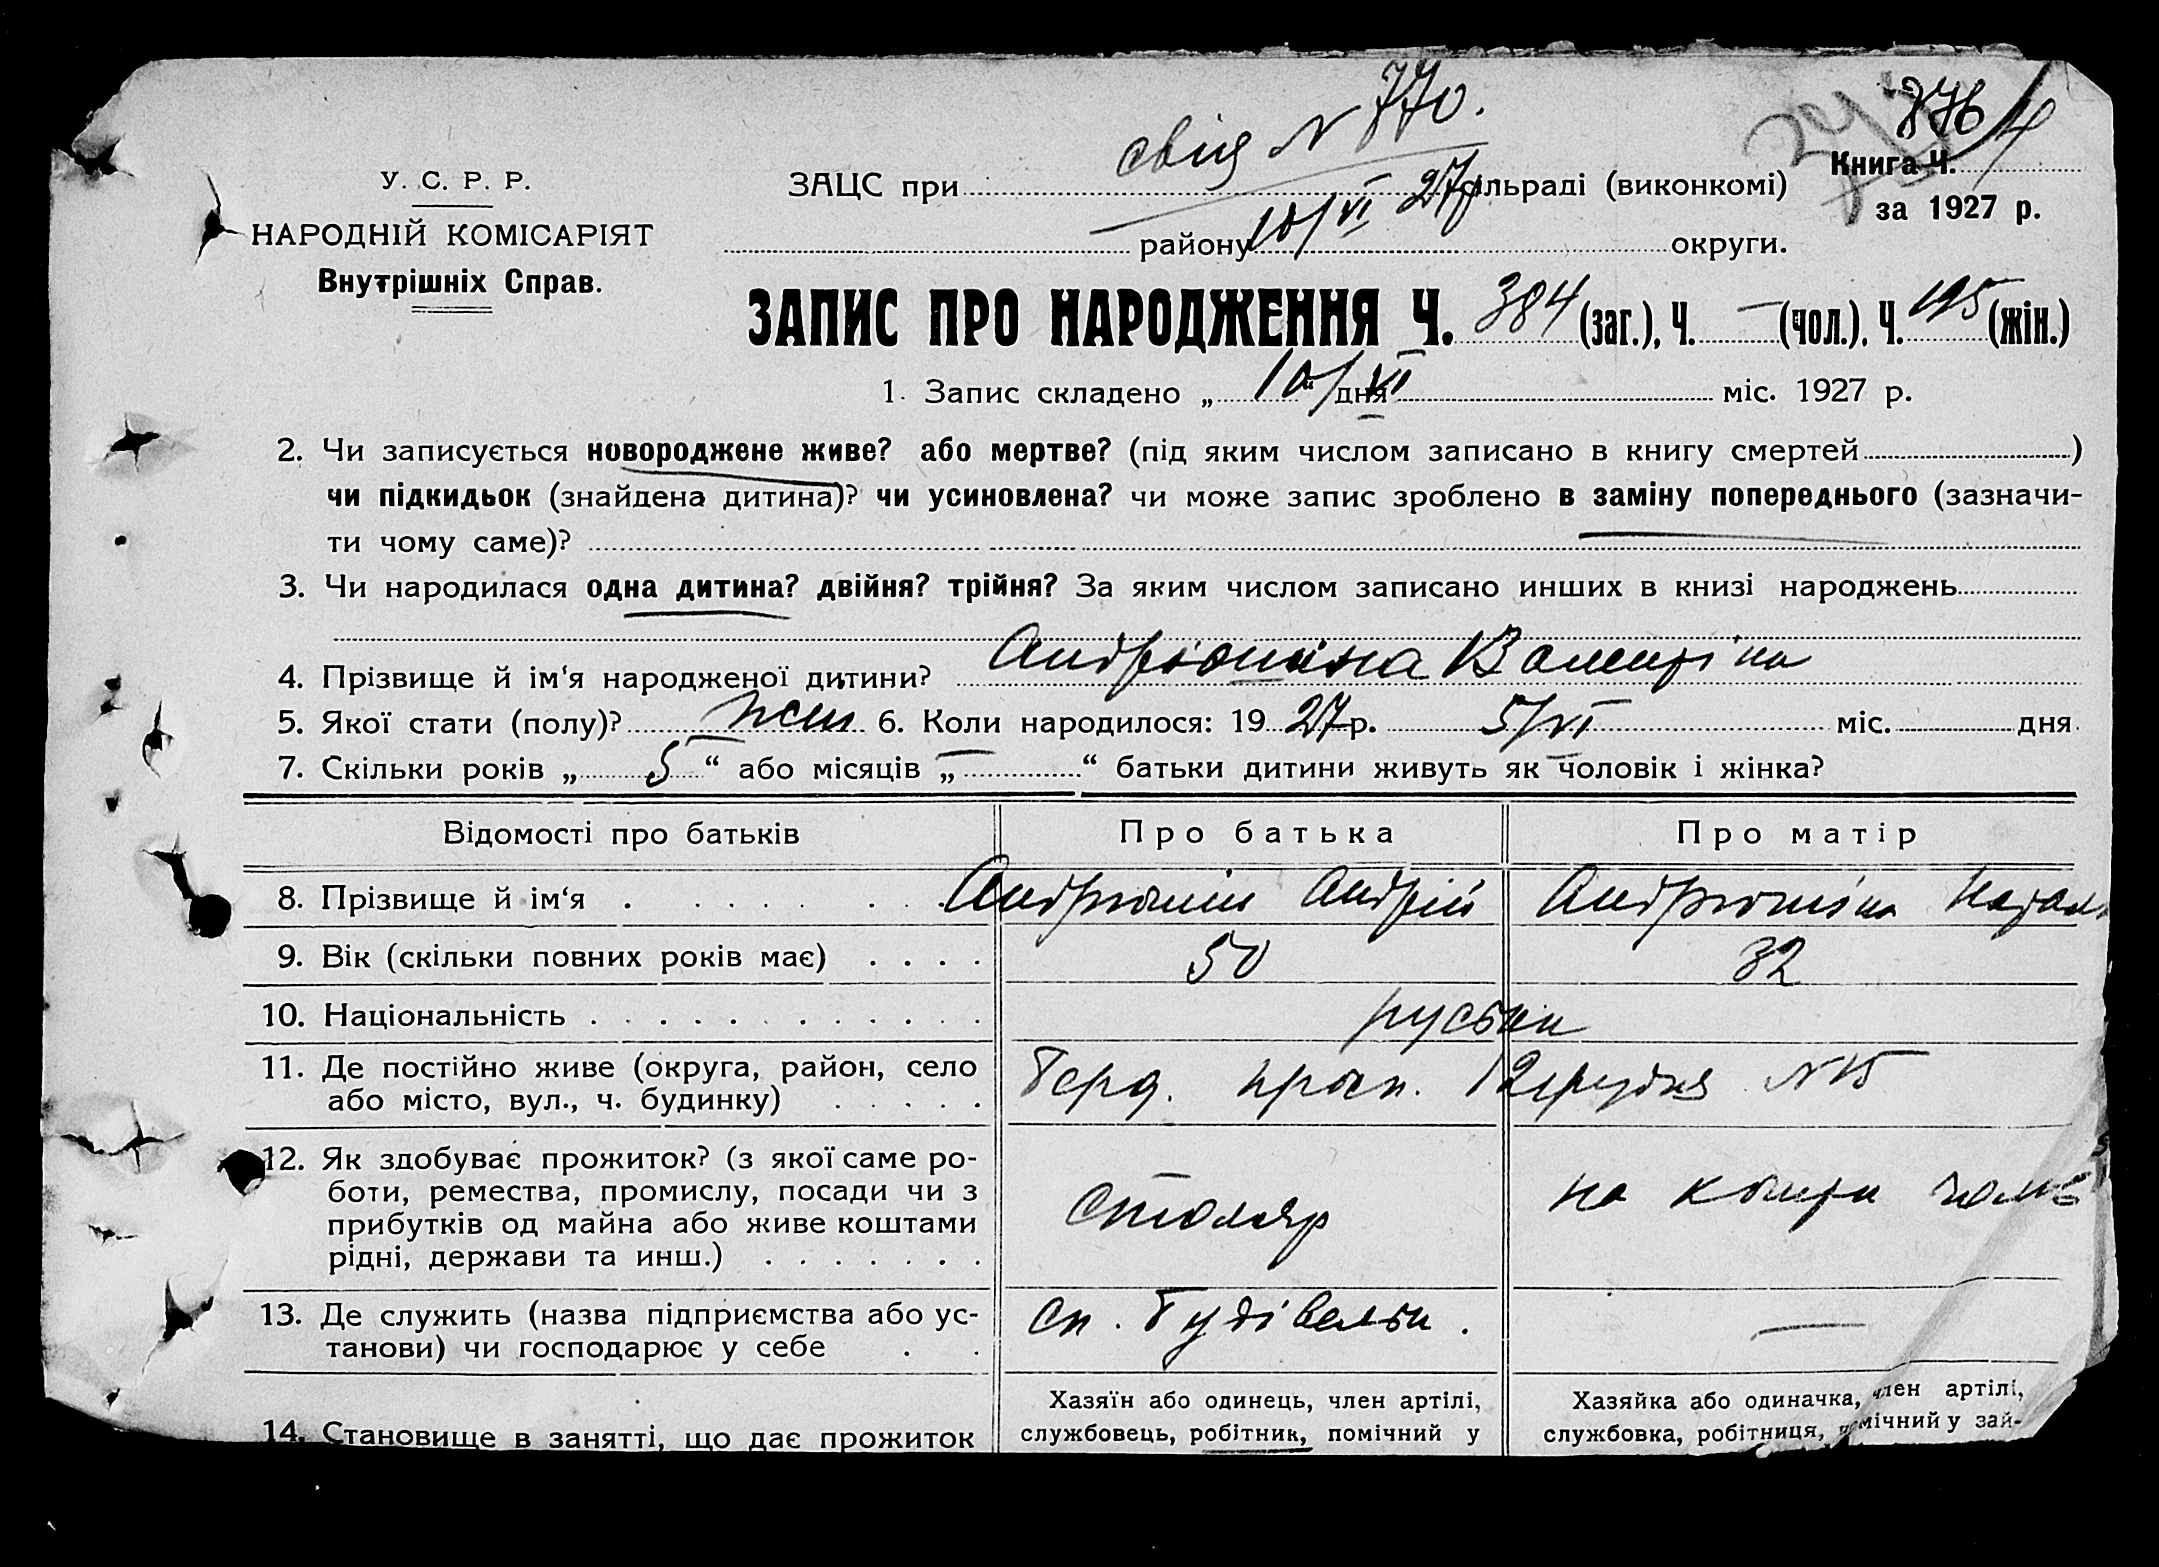 свід N 770.
876/4
У. С. Р. Р.
НАРОДНІЙ КОМІСАРІЯТ
Внутрішніх Справ.
ЗАЦС при сільраді (виконкомі)
10/VI 27р
району округи.
Книга Ч.
за 1927 р.
ЗАПИС ПРО НАРОДЖЕННЯ Ч. 384 (заг.), Ч. — (чол.), Ч. 195 (жін.)
1. Запис складено „ 10/VI “ дня міс. 1927 р.
2. Чи записується новороджене живе? або мертве? (під яким числом записано в книгу смертей )
чи підкидьок (знайдена дитина)? чи усиновлена? чи може запис зроблено в заміну попереднього (зазначи-
ти чому саме)?
3. Чи народилася одна дитина? двійня? трійня? За яким числом записано инших в книзі народжень
4. Прізвище й ім‘я народженої дитини? Андрюшіна Валентіна
5. Якої стати (полу)? жін 6. Коли народилося: 19 27 р. 5/VI міс. дня
7. Скільки років „ 5 “ або місяців „ — “ батьки дитини живуть як чоловік і жінка?
Відомості про батьків Про батька Про матір
8. Прізвище й ім‘я . Андрюшін Андрій Андрюшіна Натал
9. Вік (скільки повних років має) 50 32
10. Національність руськи
11. Де постійно живе (округа, район, село
або місто, вул., ч. будинку)
12 грудня N 15
12. Як здобуває прожиток? (з якої саме ро-
боти, ремества, промислу, посади чи з
прибутків од майна або живе коштами
рідні, держави та инш.)
столяр
на кошти чолов
13. Де служить (назва підприємства або ус-
танови) чи господарює у себе
сп. Будівельн. —
14. Становище в занятті, що дає прожиток
Хазяїн або одинець, член артілі,
службовець, робітник, помічний у
Хазяйка або одиначка, член артілі,
службовка, робітниця, помічний у зай-